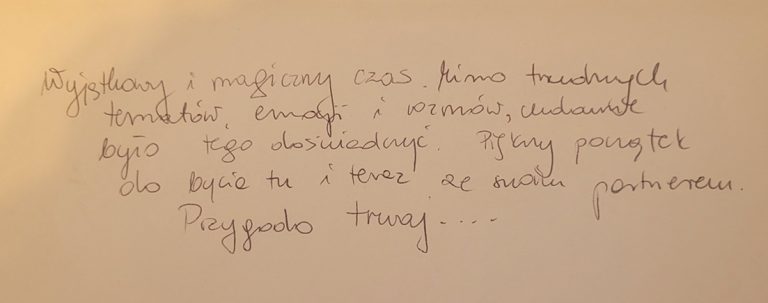 Wyjątkowy i magiczny czas. Mimo trudnych
tematów, emocji i rozmów, cudownie
było tego doświadczyć. Piękny początek
do bycia tu i teraz ze swoim partnerem.
Przygodo trwaj....